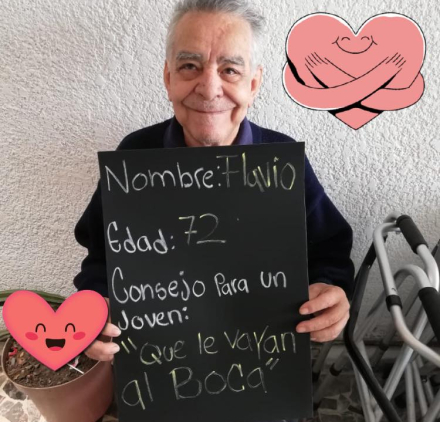 Nombre: Flavio
Edad: 72
Consejo Para un
Joven:
"Que le vayan
al Boca"